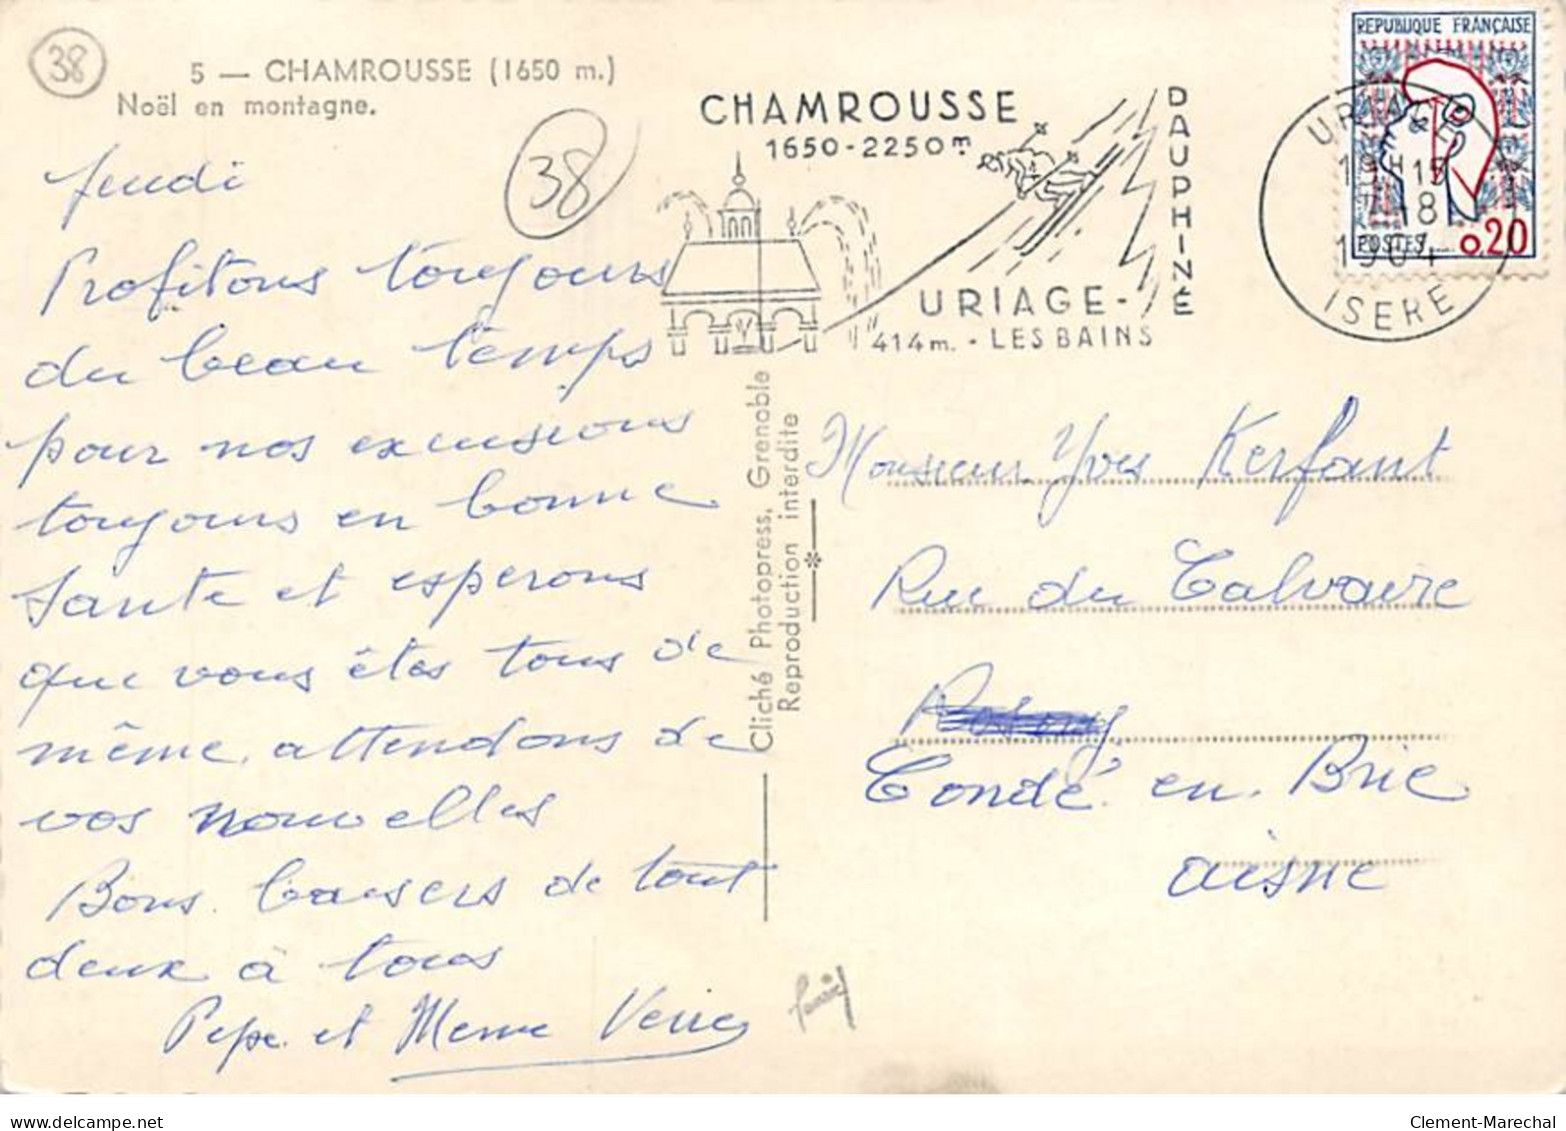 38
5 — CHAMROUSSE (1650 m.)
Noël en montagne.
38
Jeudi
Profitons toujours
du beau temps
pour nos excursions
toujours en bonne
Sante et esperons
que vous êtes tous de
même, attendons de
vos nouvelles
Bons baisers de tout
deux à tous
Pepe et Meme
CHAMROUSSE
1650-2250 m.
DAUPHINÉ
URIAGE-
LES BAINS
414 m. -
URIAGE
19H15
7-8
1964
ISERE
REPUBLIQUE FRANÇAISE
POSTES
0.20
Cliché Photopress, Grenoble
Reproduction interdite
Monsieur Yves Kerfant
Rue du Calvaire
Condé en Brie
aisne
Clement-Marechal